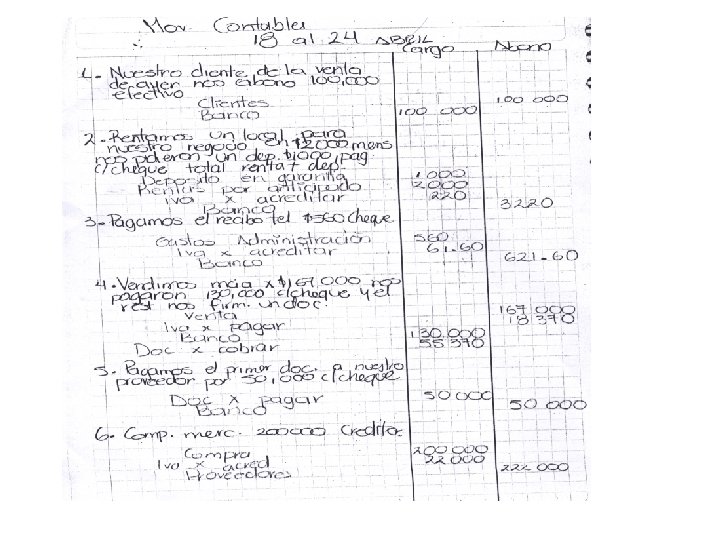 Mov. Contables
18 al 24 ABRIL
Cargo Abono
1.- Nuestro cliente de la venta
de ayer nos abono 100,000
efectivo
Clientes 100 000
Banco 100 000
2.- Rentamos un local para
nuestro negocio en $2000 mens
nos pidieron un dep. $1000, pag
c/cheque total renta + dep.
Deposito en garantia 1.000
Rentas por anticipado 2000
Iva x acreditar 220
Banco 3220
3.- Pagamos el recibo tel $560 cheque
Gastos Administración 560
Iva x acreditar 61.60
Banco 621.60
4.- Vendimos mcia x $167,000 nos
pagaron 130,000 c/cheque y el
rest nos firm. un doc.
Venta 167 000
Iva x pagar 18 370
Banco 130.000
Doc x cobrar 55 370
5.- Pagamos el primer doc. a nuestro
proveedor por 50,000 c/cheque
Doc x pagar 50 000
Banco 50 000
6.- Comp. merc. 200000 Credito
Compra 200 000
Iva x acred 22 000
Proveedores 222 000